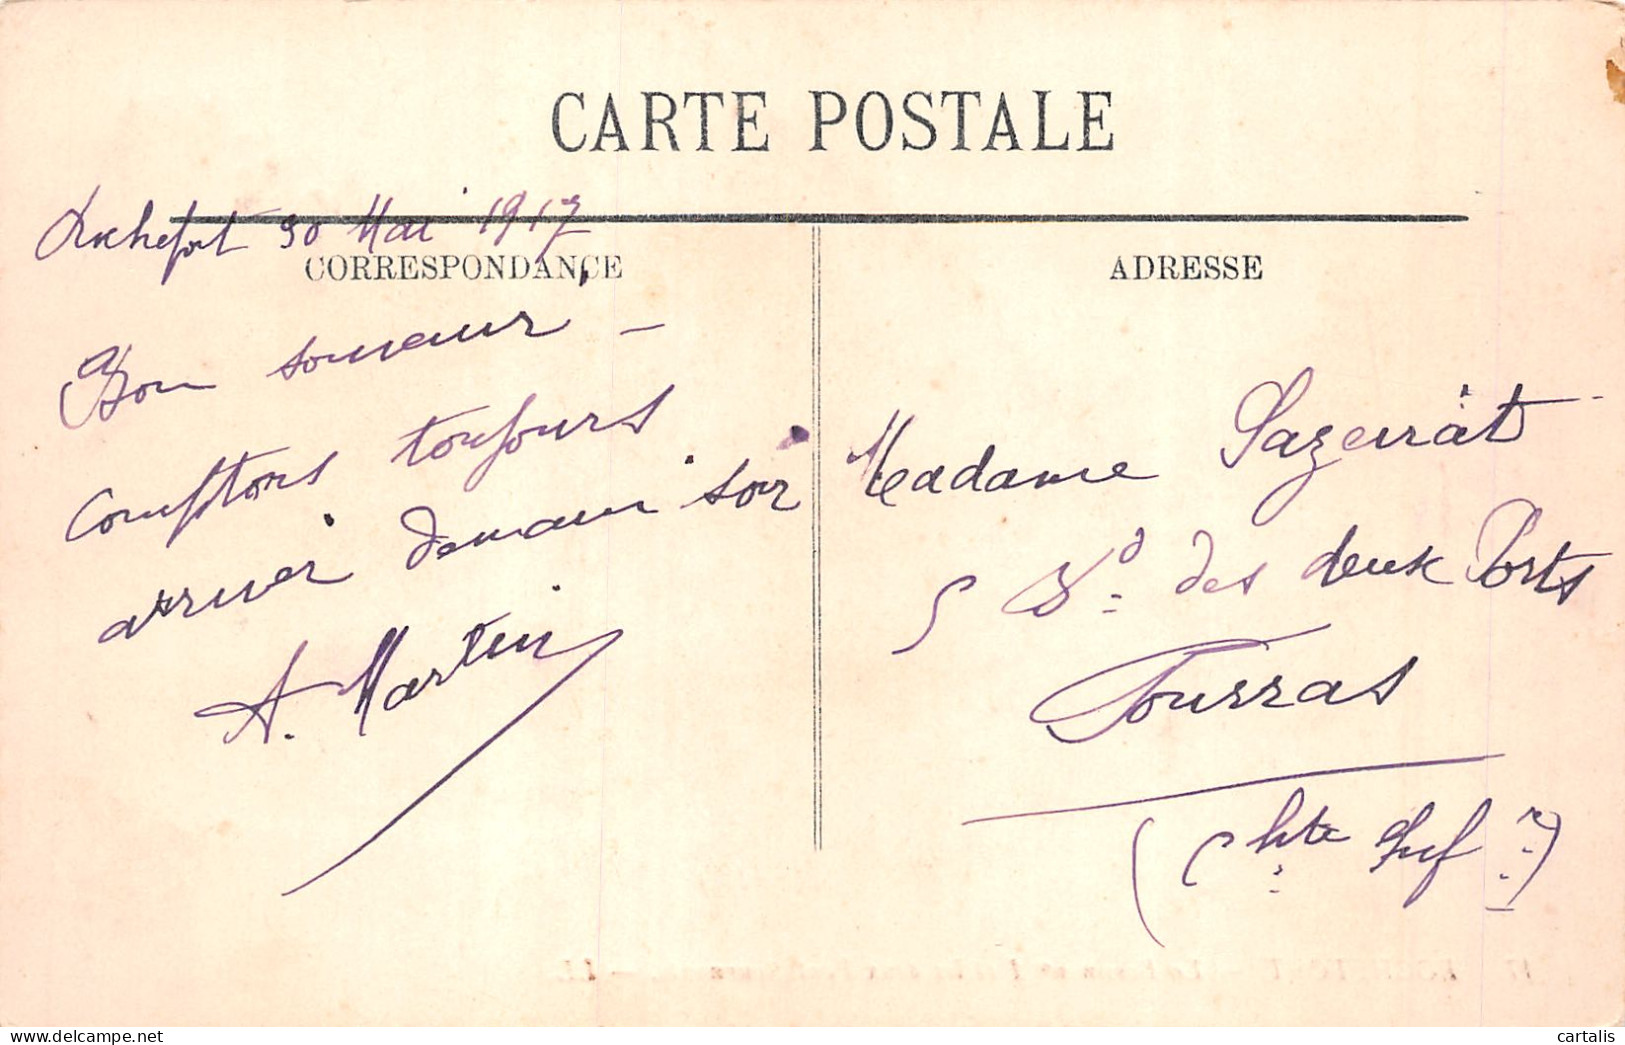 CARTE POSTALE
Rochefort 30 Mai 1917
CORRESPONDANCE
Bon souvenir —
comptons toujours
arriver demain soir
A. Martin
ADRESSE
Madame
5 Bd. des deux Ports
Fourras
(Chte Infre)
cartalis